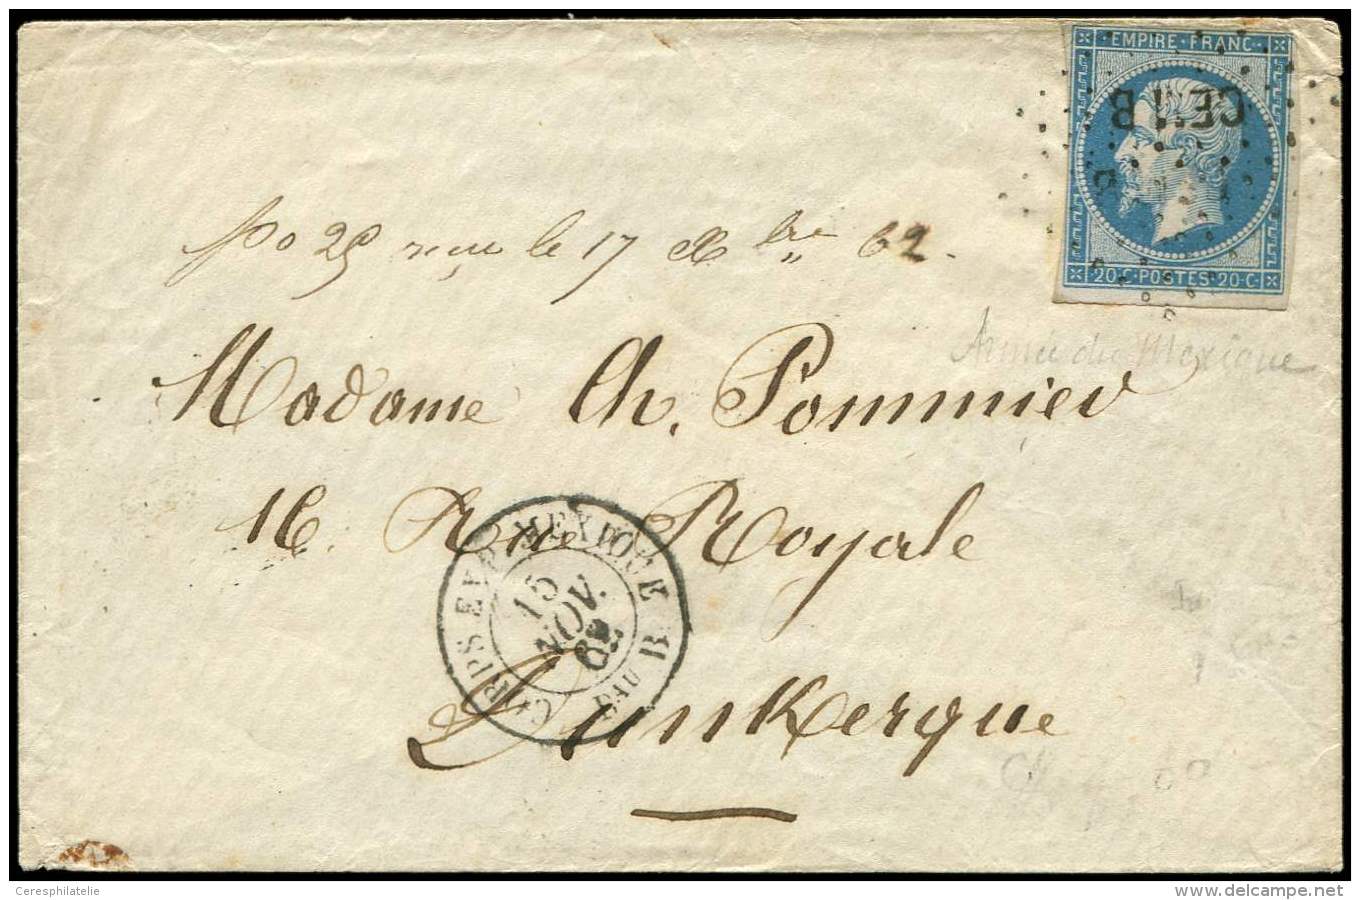 EMPIRE·FRANC·
CEMB
20·C·POSTES·20·C·
reçu le 17 Xbre 62.
Armée du Mexique
Madame Ch. Pommier
16. Rue Royale
CORPS EXP. MEXIQUE
15
NOV.
62
BAU B
Dunkerque
Ceresphilatelie
www.delcampe.net